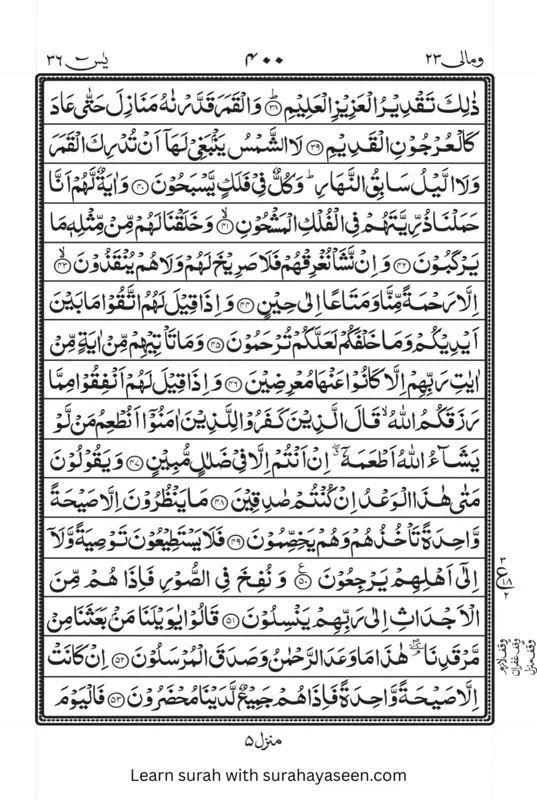 ومالی ۲۳ ۴۰۰ یٰسٓ ۳۶
ذٰلِكَ تَقْدِيْرُ الْعَزِيْزِ الْعَلِيْمِ ؕ‏﴿۳۸﴾ وَالْقَمَرَ قَدَّرْنٰهُ مَنَازِلَ حَتّٰى عَادَ
كَالْعُرْجُوْنِ الْقَدِيْمِ ﴿۳۹﴾ لَا الشَّمْسُ يَنْۢبَغِىْ لَهَاۤ اَنْ تُدْرِكَ الْقَمَرَ
وَلَا الَّيْلُ سَابِقُ النَّهَارِ ؕ وَكُلٌّ فِىْ فَلَكٍ يَّسْبَحُوْنَ ﴿۴۰﴾ وَاٰيَةٌ لَّهُمْ اَنَّا
حَمَلْنَا ذُرِّيَّتَهُمْ فِى الْفُلْكِ الْمَشْحُوْنِ ۙ﴿۴۱﴾ وَخَلَقْنَا لَهُمْ مِّنْ مِّثْلِهٖ مَا
يَرْكَبُوْنَ ﴿۴۲﴾ وَاِنْ نَّشَاْ نُغْرِقْهُمْ فَلَا صَرِيْخَ لَهُمْ وَلَا هُمْ يُنْقَذُوْنَ ۙ﴿۴۳﴾
اِلَّا رَحْمَةً مِّنَّا وَمَتَاعًا اِلٰى حِيْنٍ ﴿۴۴﴾ وَاِذَا قِيْلَ لَهُمُ اتَّقُوْا مَا بَيْنَ
اَيْدِيْكُمْ وَمَا خَلْفَكُمْ لَعَلَّكُمْ تُرْحَمُوْنَ ﴿۴۵﴾ وَمَا تَاْتِيْهِمْ مِّنْ اٰيَةٍ مِّنْ
اٰيٰتِ رَبِّهِمْ اِلَّا كَانُوْا عَنْهَا مُعْرِضِيْنَ ﴿۴۶﴾ وَاِذَا قِيْلَ لَهُمْ اَنْفِقُوْا مِمَّا
رَزَقَكُمُ اللّٰهُ ۙ قَالَ الَّذِيْنَ كَفَرُوْا لِلَّذِيْنَ اٰمَنُوْۤا اَنُطْعِمُ مَنْ لَّوْ
يَشَآءُ اللّٰهُ اَطْعَمَهٗۤ ۖ اِنْ اَنْتُمْ اِلَّا فِىْ ضَلٰلٍ مُّبِيْنٍ ﴿۴۷﴾ وَيَقُوْلُوْنَ
مَتٰى هٰذَا الْوَعْدُ اِنْ كُنْتُمْ صٰدِقِيْنَ ﴿۴۸﴾ مَا يَنْظُرُوْنَ اِلَّا صَيْحَةً
وَّاحِدَةً تَاْخُذُهُمْ وَهُمْ يَخِصِّمُوْنَ ﴿۴۹﴾ فَلَا يَسْتَطِيْعُوْنَ تَوْصِيَةً وَّلَاۤ
اِلٰٓى اَهْلِهِمْ يَرْجِعُوْنَ ﴿۵۰﴾ وَنُفِخَ فِى الصُّوْرِ فَاِذَا هُمْ مِّنَ
الْاَجْدَاثِ اِلٰى رَبِّهِمْ يَنْسِلُوْنَ ﴿۵۱﴾ قَالُوْا يٰوَيْلَنَا مَنْۢ بَعَثَنَا مِنْ
مَّرْقَدِنَا ۘ هٰذَا مَا وَعَدَ الرَّحْمٰنُ وَصَدَقَ الْمُرْسَلُوْنَ ﴿۵۲﴾ اِنْ كَانَتْ
اِلَّا صَيْحَةً وَّاحِدَةً فَاِذَا هُمْ جَمِيْعٌ لَّدَيْنَا مُحْضَرُوْنَ ﴿۵۳﴾ فَالْيَوْمَ
منزل ۵
Learn surah with surahayaseen.com